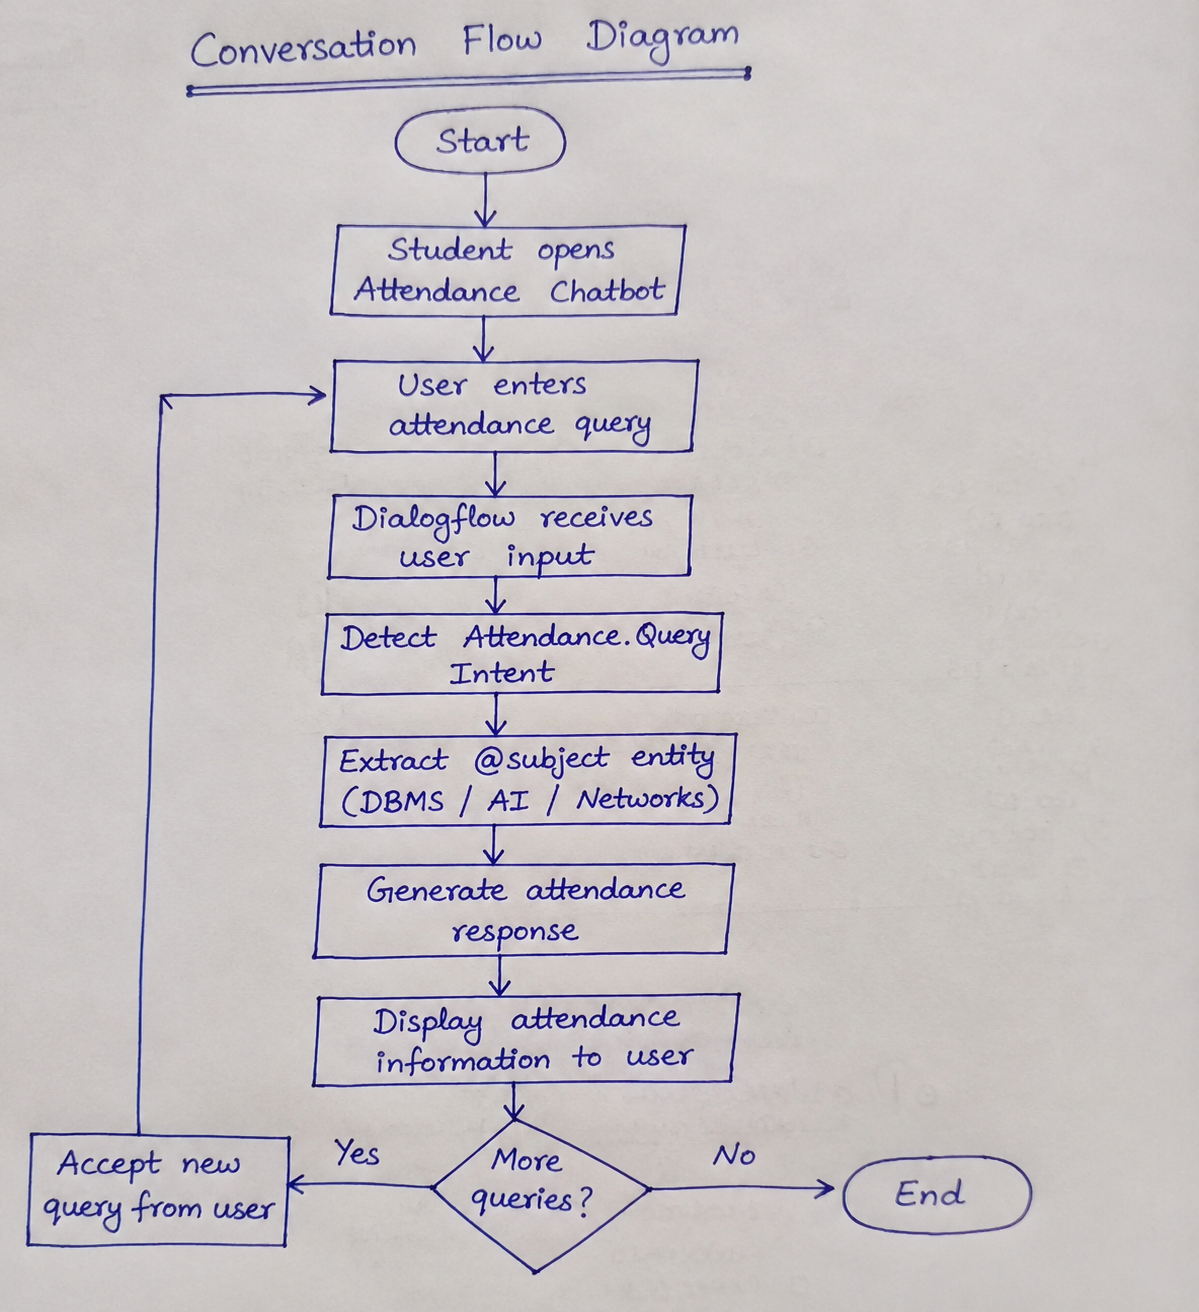 Conversation Flow Diagram
Start
Student opens
Attendance Chatbot
User enters
attendance query
Dialogflow receives
user input
Detect Attendance.Query
Intent
Extract @subject entity
(DBMS / AI / Networks)
Generate attendance
response
Display attendance
information to user
More
queries?
Yes
No
Accept new
query from user
End